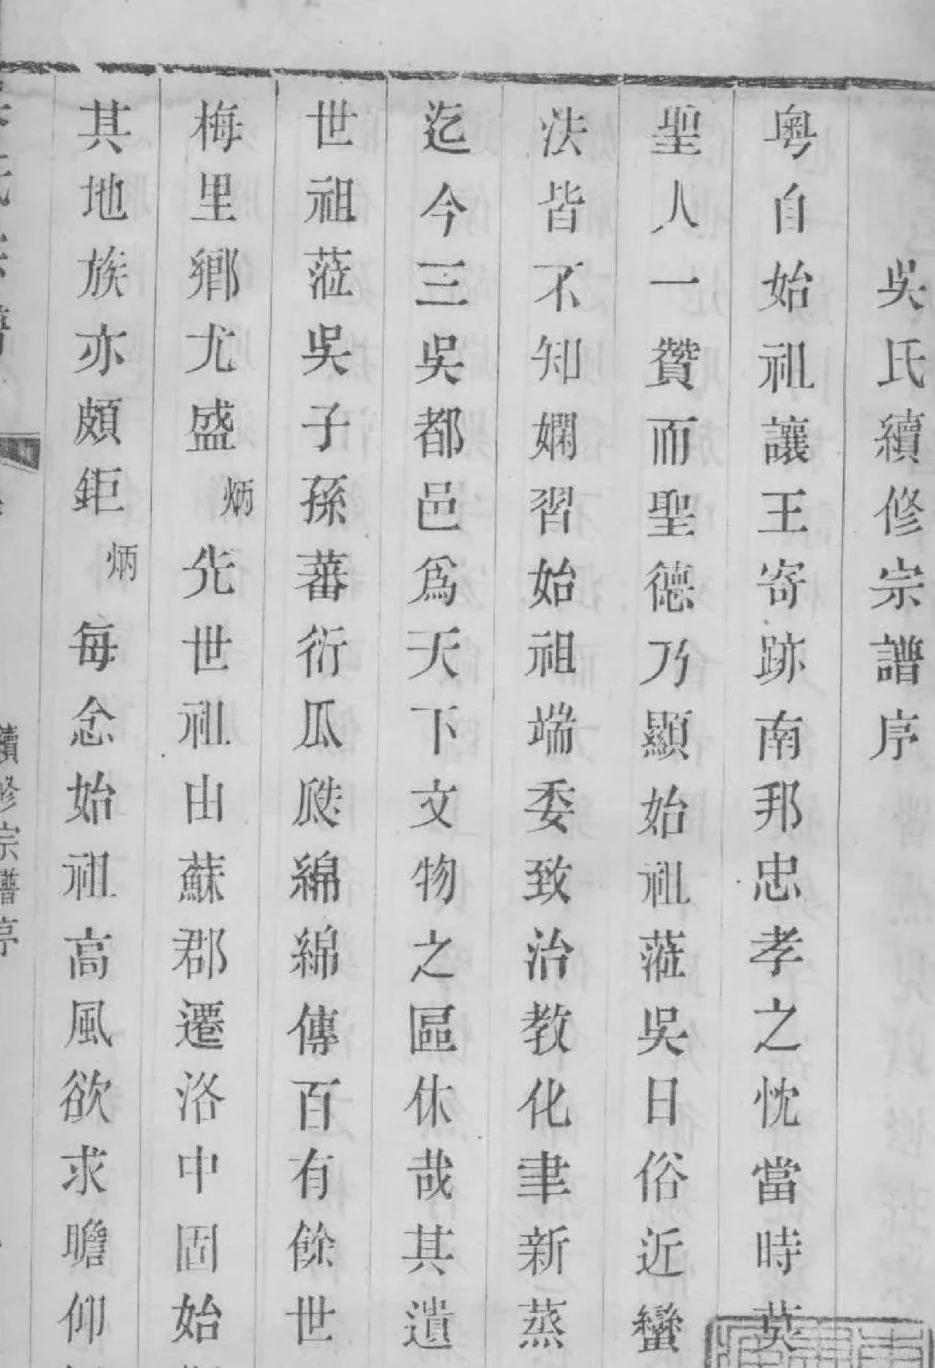 吳氏續修宗譜序
粤自始祖讓王寄跡南邦忠孝之忱當時莫
聖人一贊而聖德乃顯始祖蒞吳日俗近蠻
法皆不知嫻習始祖端委致治教化聿新蒸
迄今三吳都邑爲天下文物之區休哉其遺
世祖蒞吳子孫蕃衍瓜瓞綿綿傳百有餘世
梅里鄉尤盛炳先世祖由蘇郡遷洛中固始
其地族亦頗鉅炳每念始祖高風欲求瞻仰
續修宗譜序